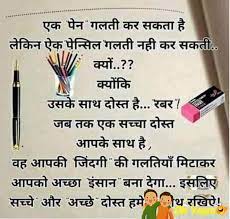 एक पेन गलती कर सकता है
लेकिन ऐक पेन्सिल गलती नही कर सकती..
क्यों..??
क्योंकि
उसके साथ दोस्त है... रबर
जब तक एक सच्चा दोस्त
आपके साथ है ,
वह आपकी जिंदगी की गलतियाँ मिटाकर
आपको अच्छा इंसान बना देगा... इसलिए
सच्चे और अच्छे दोस्त रखिऐ!